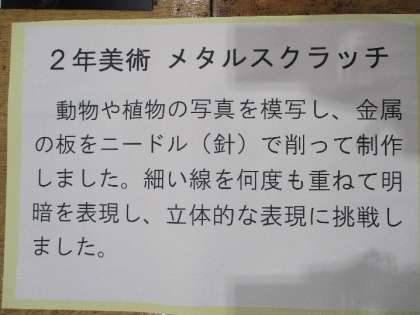 ２年美術 メタルスクラッチ
動物や植物の写真を模写し、金属
の板をニードル（針）で削って制作
しました。細い線を何度も重ねて明
暗を表現し、立体的な表現に挑戦し
ました。